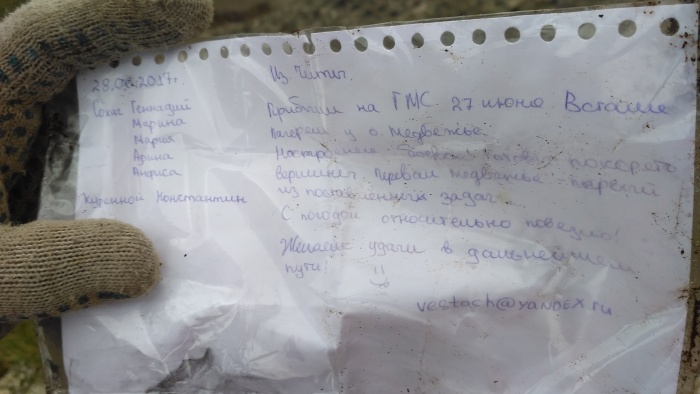 28.06.2017г.
Из Читы.
Сохас Геннадий
Марина
Марья
Арина
Анфиса
Куренной Константин
Прибыли на ГМС 27 июня Встали
лагерем у о. Медвежье.
Настроение боевое. Готовы покорять
вершины. Перевал медвежье первый
из поставленных задач.
С погодой относительно повезло!
Желаем удачи в дальнейшем
пути!
vestach@yandex.ru